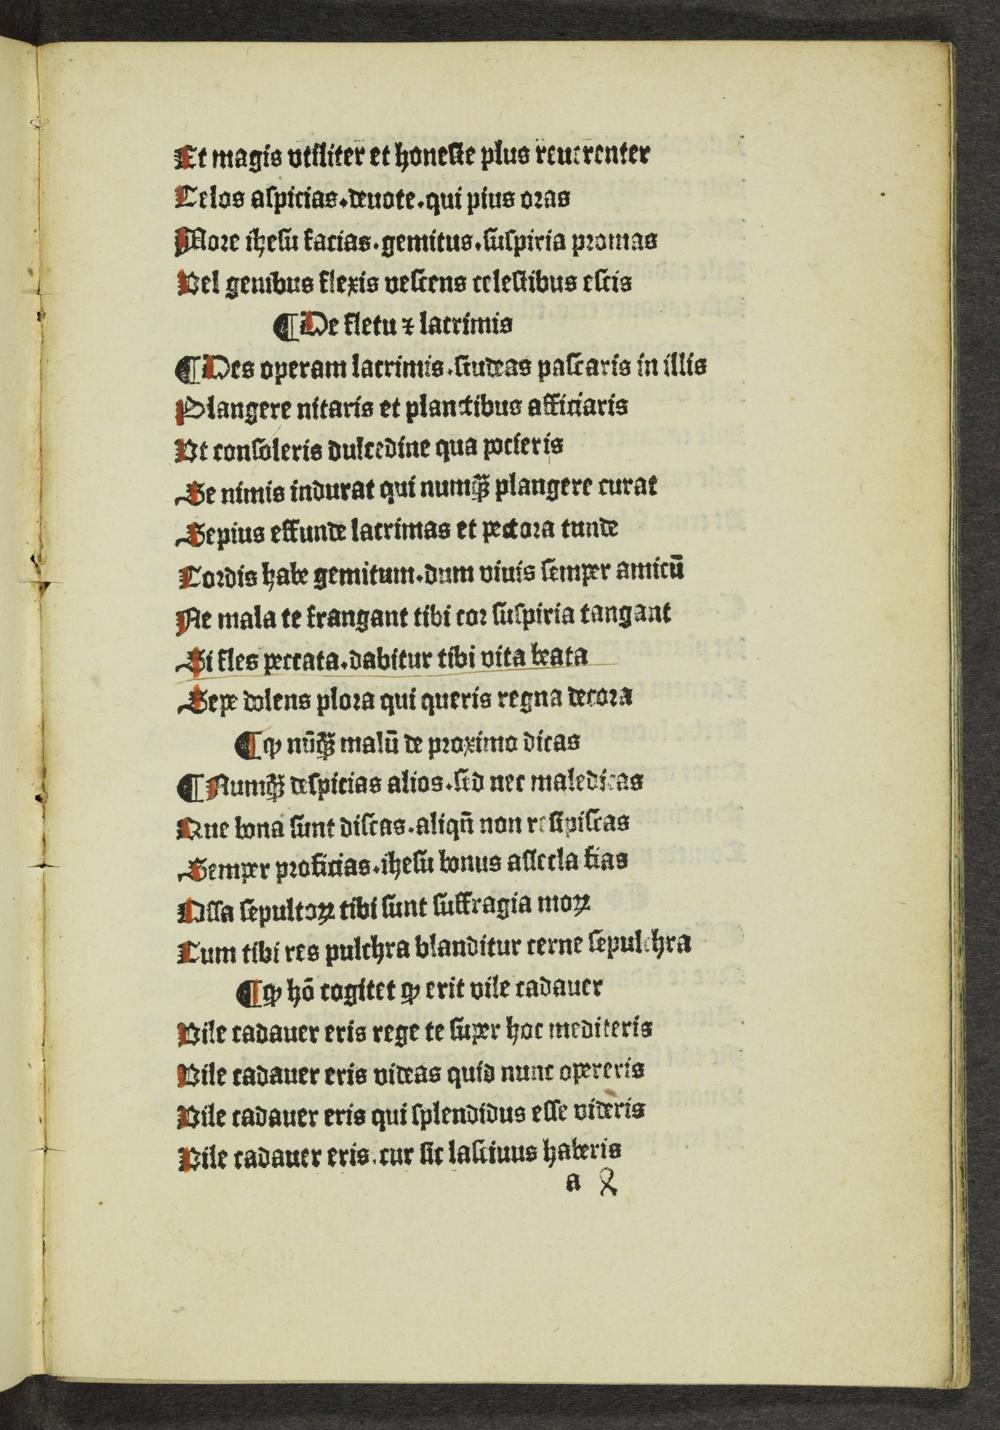 Et magis vtiliter et honeste plus reuerenter
Celos aspicias.deuote.qui pius oras
More ihesu facias.gemitus.suspiria promas
Vel genibus flexis vescens celestibus escis
¶De fletu ⁊ lacrimis
¶Des operam lacrimis.studeas pascaris in illis
Plangere nitaris et planctibus afficiaris
Vt consoleris dulcedine qua pocieris
Se nimis indurat qui numꝙ̄ plangere curat
Sepius effunde lacrimas et pectora tunde
Cordis habe gemitum.dum viuis semper amicū
Ne mala te frangant tibi cor suspiria tangant
Si fles peccata.dabitur tibi vita beata
Sepe dolens plora qui queris regna decora
¶ꝙ nūꝙ̄ malū de proximo dicas
¶Numꝙ̄ despicias alios.sed nec maledicas
Que bona sunt discas.aliqn̄ non resipiscas
Semper proficias.ihesu bonus assecla fias
Ossa sepultoꝝ tibi sunt suffragia moꝝ
Cum tibi res pulchra blanditur cerne sepulchra
¶ꝙ hō cogitet ꝙ erit vile cadauer
Vile cadauer eris rege te super hoc mediteris
Vile cadauer eris videas quid nunc opereris
Vile cadauer eris qui splendidus esse videris
Vile cadauer eris.cur sic lasciuus haberis
a 2